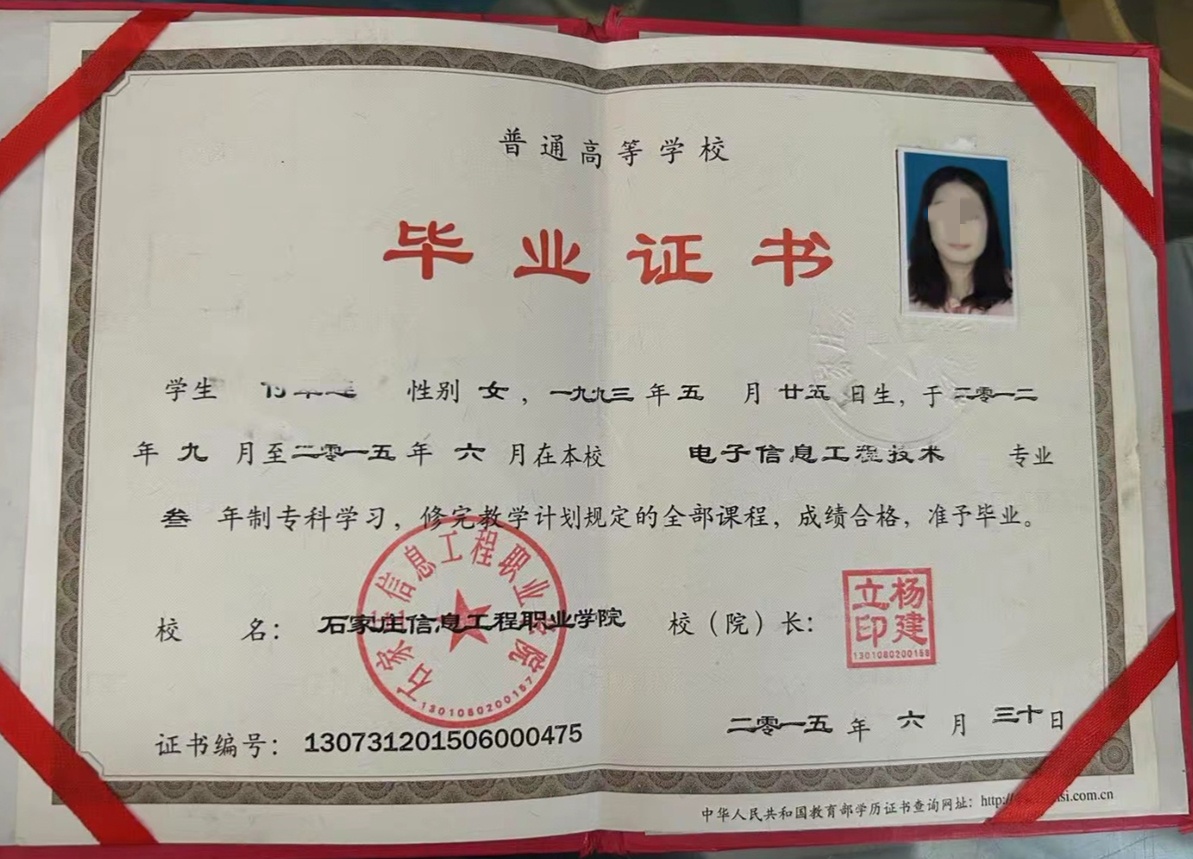 普通高等学校
毕业证书
学生 性别 女，一九九三年五月廿五日生，于二零一二
年九月至二零一五年六月在本校 电子信息工程技术 专业
叁年制专科学习，修完教学计划规定的全部课程，成绩合格，准予毕业。
校 名：石家庄信息工程职业学院 校（院）长：
石家庄信息工程职业学院
1301080200157
杨建立印
1301080200158
证书编号：130731201506000475
二零一五年六月三十日
中华人民共和国教育部学历证书查询网址：http://si.com.cn